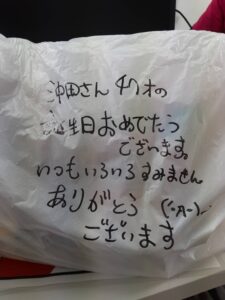 沖田さん 47才の
お誕生日おめでとう
ございます。
いつもいろいろすみません
ありがとう
ございます